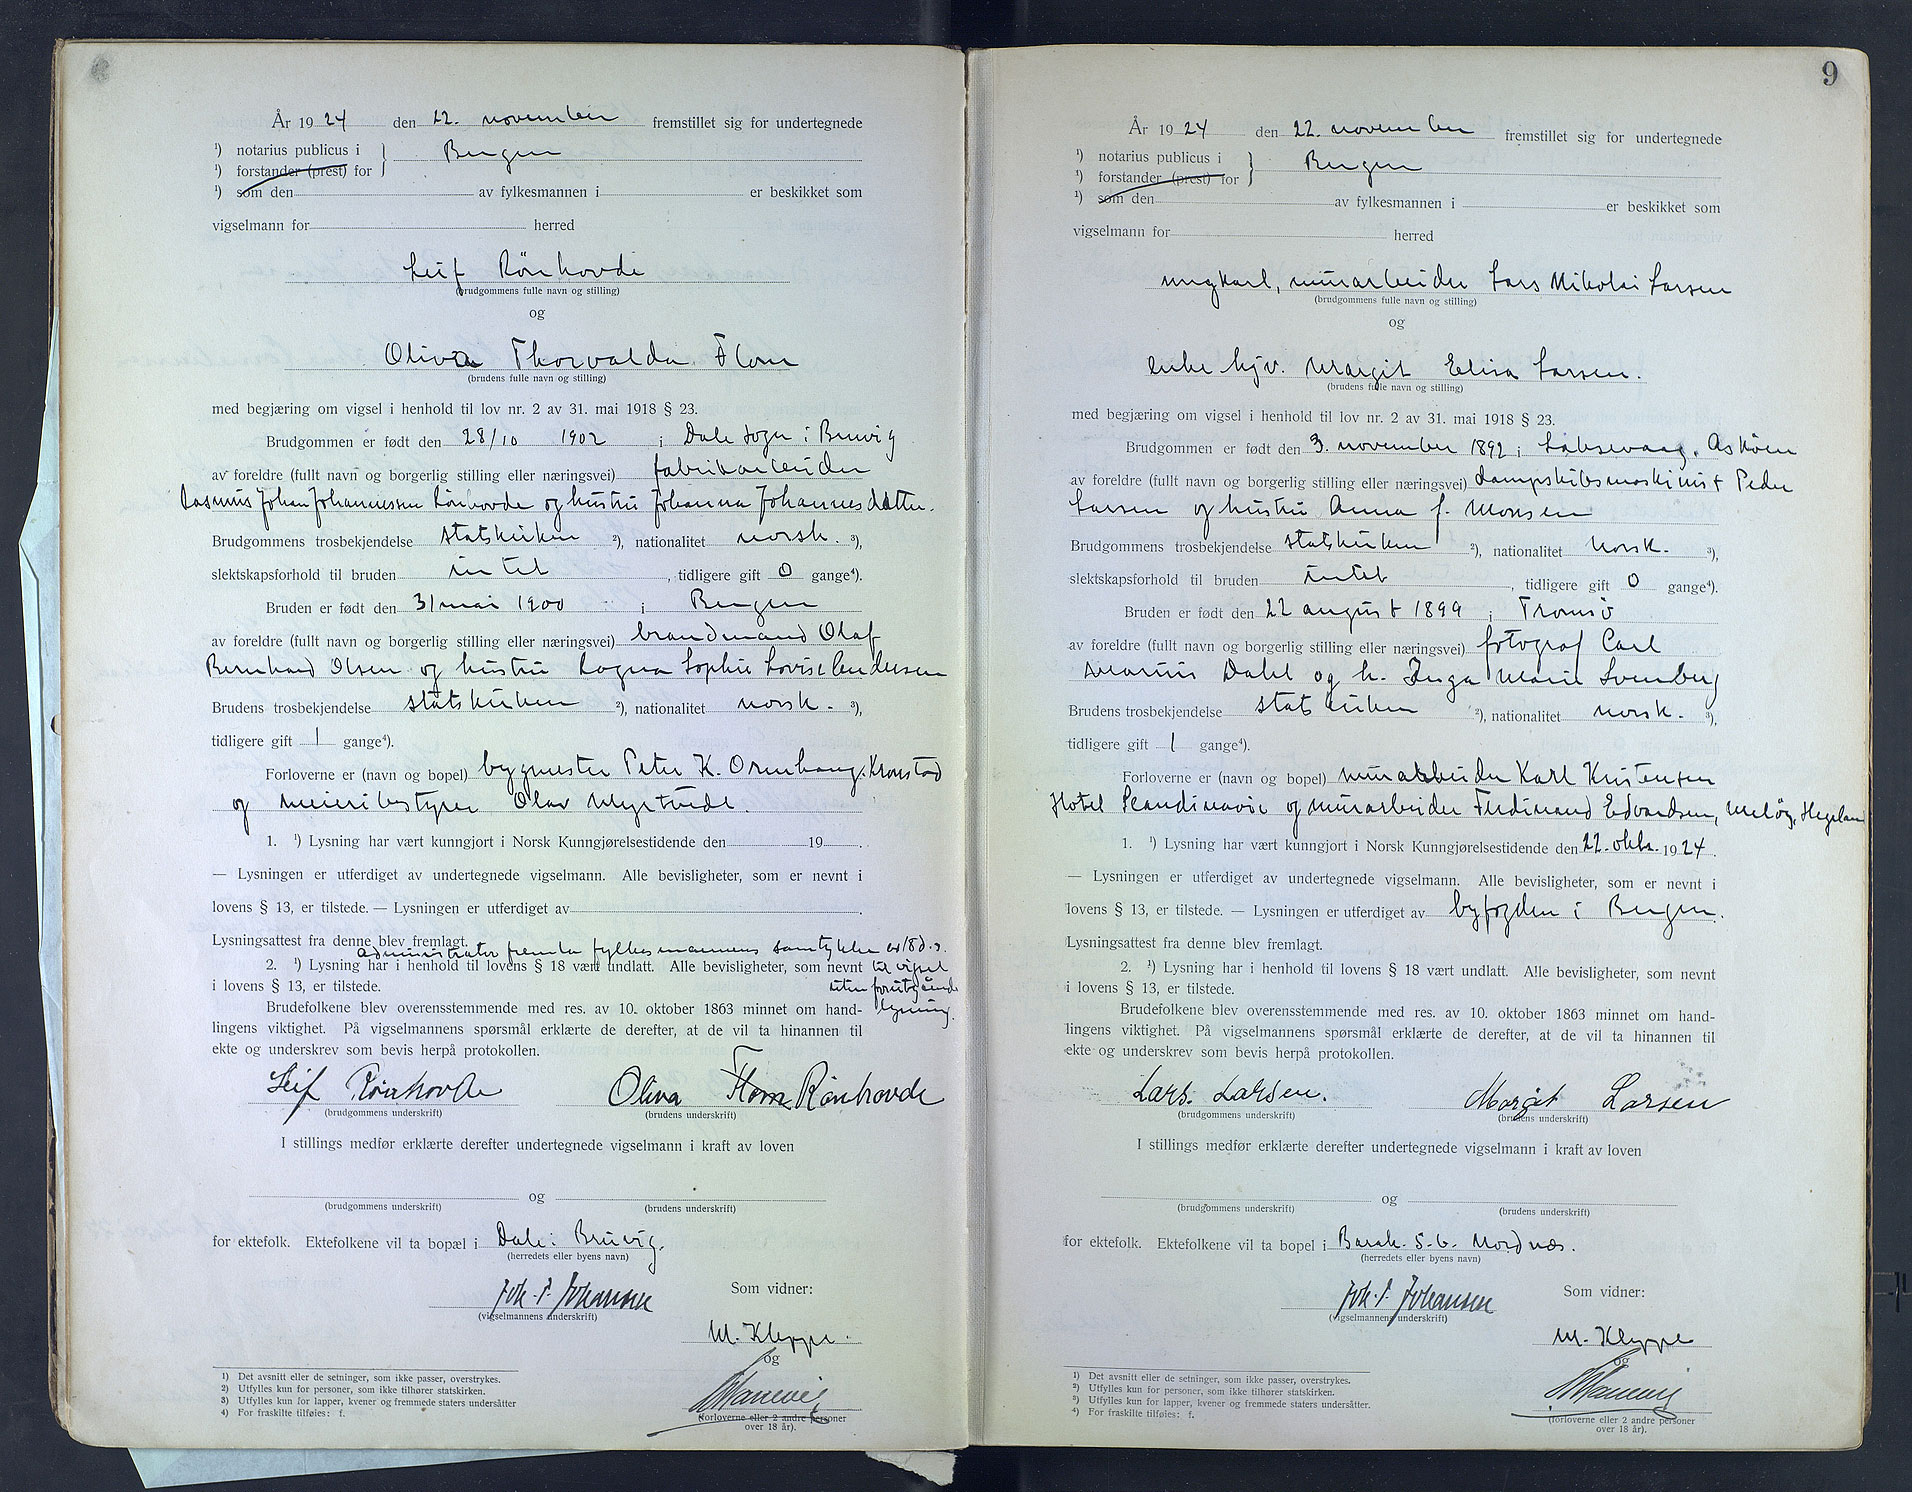 År 1924 den 22. november fremstillet sig for undertegnede
¹) notarius publicus i } Bergen
¹) forstander (prest) for
¹) som den av fylkesmannen i er beskikket som
vigselmann for herred
Leif Rönhovde
(brudgommens fulle navn og stilling)
og
Oliva Thorvalda Flom
(brudens fulle navn og stilling)
med begjæring om vigsel i henhold til lov nr. 2 av 31. mai 1918 § 23.
Brudgommen er født den 28/10 1902 i Dale sogn i Bruvig
av foreldre (fullt navn og borgerlig stilling eller næringsvei) fabrikarbeider
Rasmus Johan Johannessen Rönhovde og hustru Johanna Johannesdatter.
Brudgommens trosbekjendelse statskirken ²), nationalitet norsk. ³),
slektskapsforhold til bruden intet, tidligere gift 0 gange⁴).
Bruden er født den 31 mai 1900 i Bergen
av foreldre (fullt navn og borgerlig stilling eller næringsvei) brandmand Olaf
Bernhard Olsen og hustru Ragna Sophie Lovise Andersen
Brudens trosbekjendelse statskirken ²), nationalitet norsk. ³),
tidligere gift 1 gange⁴).
Forloverne er (navn og bopel) bygmester Peter K. Ormhaug, Kronstad
og meieribestyrer Olav Myrtvedt.
1. ¹) Lysning har vært kunngjort i Norsk Kunngjørelsestidende den 19 .
— Lysningen er utferdiget av undertegnede vigselmann. Alle bevisligheter, som er nevnt i
lovens § 13, er tilstede. — Lysningen er utferdiget av .
Lysningsattest fra denne blev fremlagt.
administrator fremla fylkesmannens samtykke av 18 d.s.
2. ¹) Lysning har i henhold til lovens § 18 vært undlatt. Alle bevisligheter, som nevnt til vigsel
i lovens § 13, er tilstede. uten forutgående
Brudefolkene blev overensstemmende med res. av 10. oktober 1863 minnet om hand- lysning.
lingens viktighet. På vigselmannens spørsmål erklærte de derefter, at de vil ta hinannen til
ekte og underskrev som bevis herpå protokollen.
Leif Rönhovde Oliva Flom Rönhovde
(brudgommens underskrift) (brudens underskrift)
I stillings medfør erklærte derefter undertegnede vigselmann i kraft av loven
og
(brudgommens underskrift) (brudens underskrift)
for ektefolk. Ektefolkene vil ta bopæl i Dale i Bruvig.
(herredets eller byens navn)
Joh. P. Johansen Som vidner:
(vigselmannens underskrift)
M. Kleppe.
og
(forloverne eller 2 andre personer
over 18 år).
1) Det avsnitt eller de setninger, som ikke passer, overstrykes.
2) Utfylles kun for personer, som ikke tilhører statskirken.
3) Utfylles kun for lapper, kvener og fremmede staters undersåtter
4) For fraskilte tilføies: f.
9
År 1924 den 22. november fremstillet sig for undertegnede
¹) notarius publicus i } Bergen
¹) forstander (prest) for
¹) som den av fylkesmannen i er beskikket som
vigselmann for herred
ungkarl, murarbeider Lars Nikolai Larsen
(brudgommens fulle navn og stilling)
og
enke hjv. Margit Elisa Larsen.
(brudens fulle navn og stilling)
med begjæring om vigsel i henhold til lov nr. 2 av 31. mai 1918 § 23.
Brudgommen er født den 3. november 1892 i Laksevaag, Askøen
av foreldre (fullt navn og borgerlig stilling eller næringsvei) dampskibsmaskinist Peder
Larsen og hustru Anna f. Monsen
Brudgommens trosbekjendelse statskirken ²), nationalitet norsk. ³),
slektskapsforhold til bruden intet, tidligere gift 0 gange⁴).
Bruden er født den 22 august 1899 i Tromsö
av foreldre (fullt navn og borgerlig stilling eller næringsvei) fotograf Carl
Marius Dahl og h. Inga Marie Svenberg
Brudens trosbekjendelse statskirken ²), nationalitet norsk. ³),
tidligere gift 1 gange⁴).
Forloverne er (navn og bopel) murarbeider Karl Kristensen
Hotel Scandinavie og murarbeider Ferdinand Edvardsen, Meløy, Hegeland
1. ¹) Lysning har vært kunngjort i Norsk Kunngjørelsestidende den 22. oktbr. 1924.
— Lysningen er utferdiget av undertegnede vigselmann. Alle bevisligheter, som er nevnt i
lovens § 13, er tilstede. — Lysningen er utferdiget av byfogden i Bergen.
Lysningsattest fra denne blev fremlagt.
2. ¹) Lysning har i henhold til lovens § 18 vært undlatt. Alle bevisligheter, som nevnt
i lovens § 13, er tilstede.
Brudefolkene blev overensstemmende med res. av 10. oktober 1863 minnet om hand-
lingens viktighet. På vigselmannens spørsmål erklærte de derefter, at de vil ta hinannen til
ekte og underskrev som bevis herpå protokollen.
Lars. Larsen. Margit Larsen
(brudgommens underskrift) (brudens underskrift)
I stillings medfør erklærte derefter undertegnede vigselmann i kraft av loven
og
(brudgommens underskrift) (brudens underskrift)
for ektefolk. Ektefolkene vil ta bopel i Barak. 5.6. Nordnæs.
(herredets eller byens navn)
Joh. P. Johansen Som vidner:
(vigselmannens underskrift)
M. Kleppe
og
(forloverne eller 2 andre personer
over 18 år).
1) Det avsnitt eller de setninger, som ikke passer, overstrykes.
2) Utfylles kun for personer, som ikke tilhører statskirken.
3) Utfylles kun for lapper, kvener og fremmede staters undersåtter.
4) For fraskilte tilføies: f.